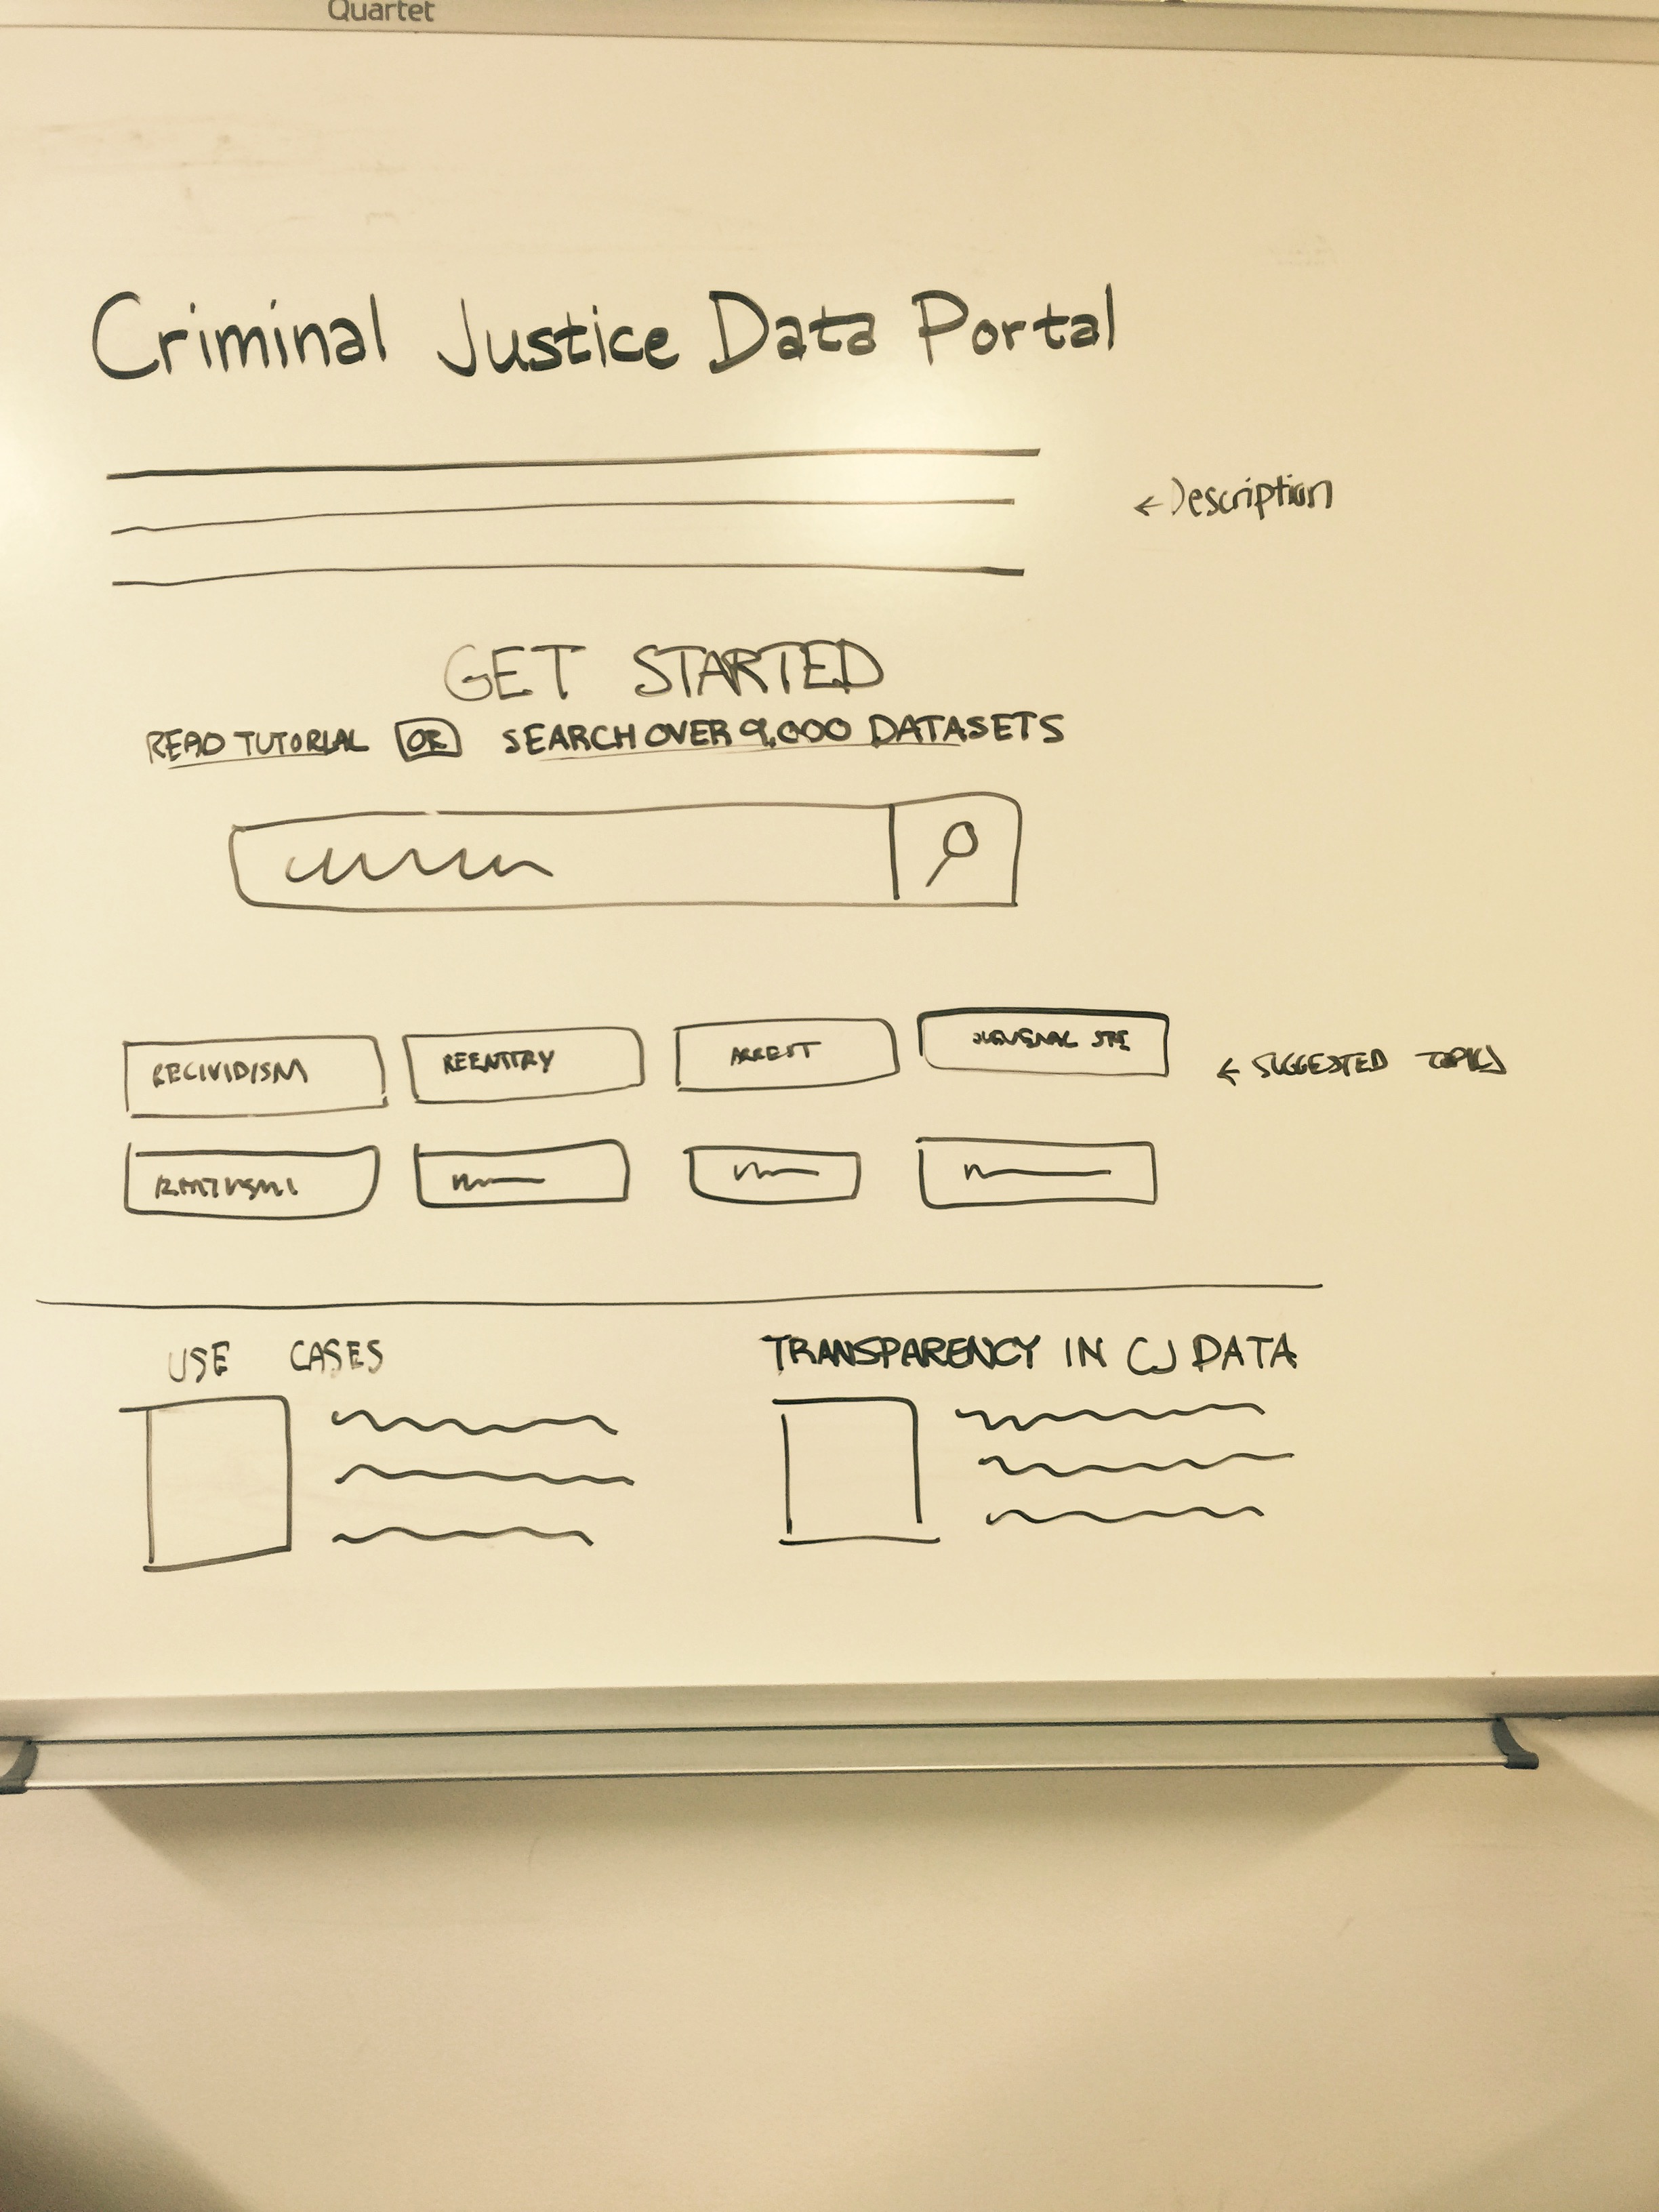 Quartet
Criminal Justice Data Portal
← Description
GET STARTED
READ TUTORIAL OR SEARCH OVER 9,000 DATASETS
RECIVIDISM REENTRY ARREST
← SUGGESTED TOPICS
USE CASES TRANSPARENCY IN CJ DATA